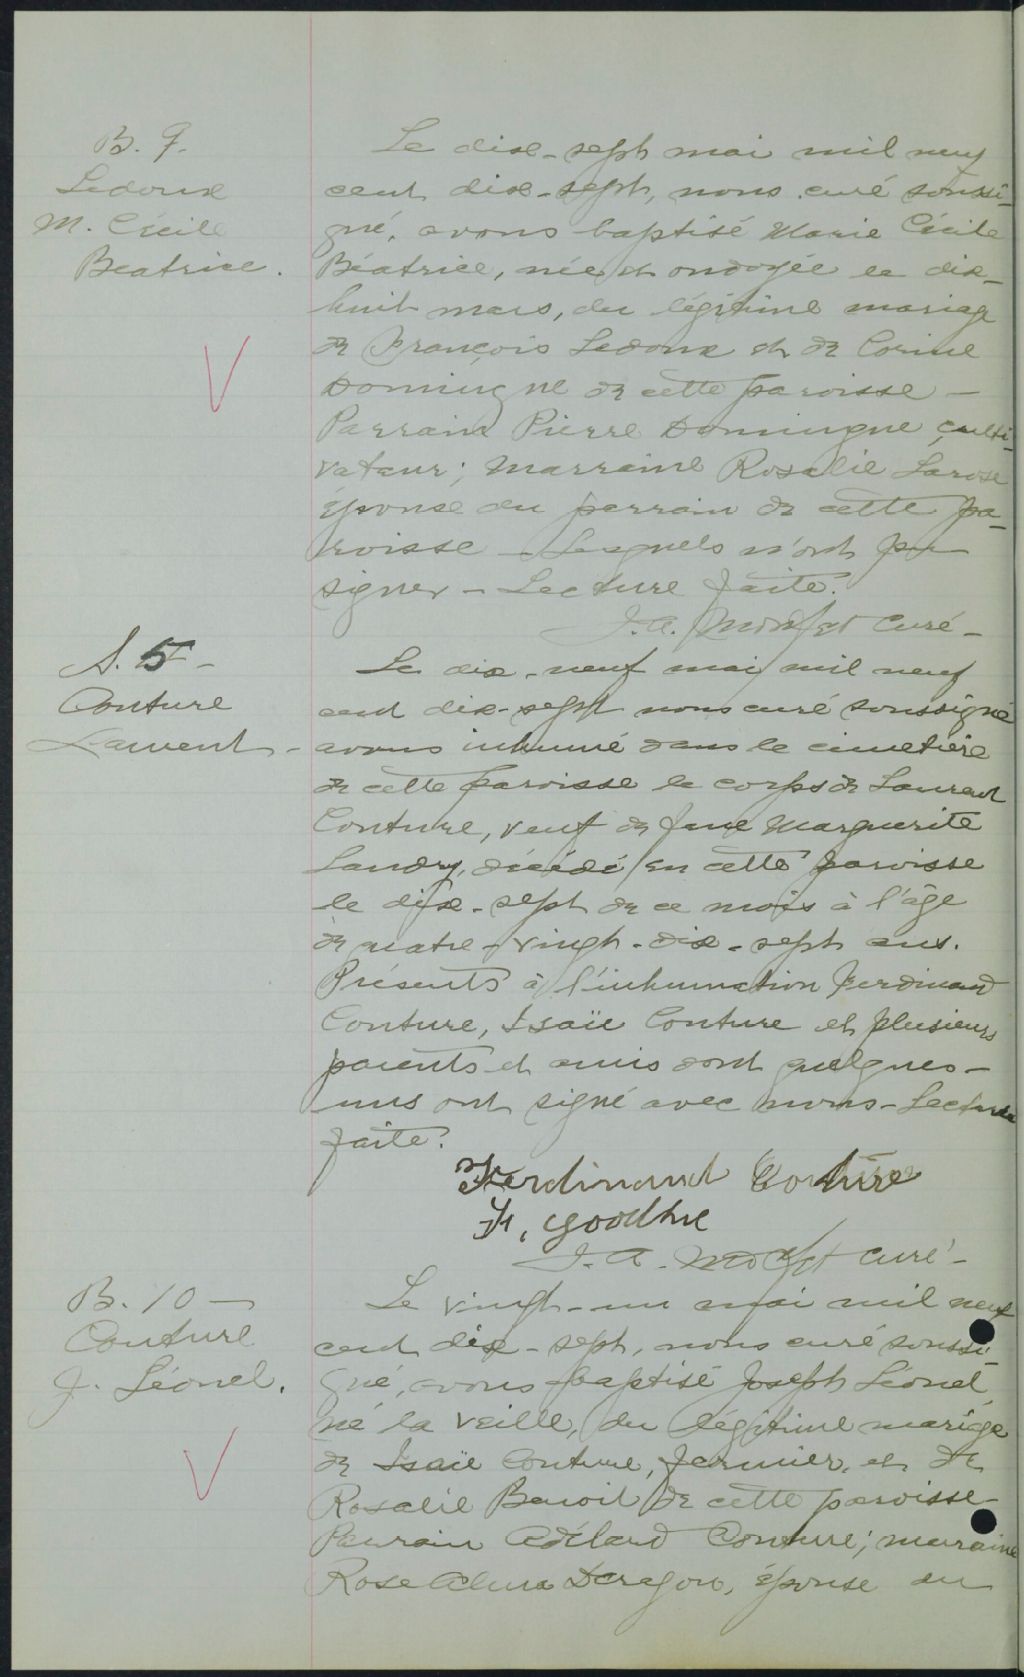 B. 9.
Ledoux
M. Cécile
Beatrice.
Le dix-sept mai mil neuf
cent dix-sept, nous curé soussi-
gné, avons baptisé Marie Cécile
Béatrice, née et ondoyée le dix-
huit mars, du légitime mariage
de François Ledoux et de Corine
Domingue de cette paroisse -
Parrain Pierre Domingue culti-
vateur; marraine Rosalie Larose
épouse du parrain de cette pa-
roisse - Lesquels n'ont pu
signer - Lecture faite.
J. A. curé -
S. 5 -
Couture
Laurent -
Le dix-neuf mai mil neuf
cent dix-sept nous curé soussigné
avons inhumé dans le cimetière
de cette paroisse le corps de Laurent
Couture, veuf de feue Marguerite
Landry, décédé en cette paroisse
le dix-sept de ce mois à l'âge
de quatre-vingt-dix-sept ans.
Présents à l'inhumation Ferdinand
Couture, Isaïe Couture et plusieurs
parents et amis dont quelques-
uns ont signé avec nous - Lecture
faite.
Ferdinand Couture
F. Goodhue
J. A. curé -
B. 10 -
Couture
J. Léonel.
Le vingt-un mai mil neuf
cent dix-sept, nous curé soussi-
gné, avons baptisé Joseph Léonel
né la veille, du légitime mariage
de Isaïe Couture, fermier, et de
Rosalie Benoit de cette paroisse -
Parrain Adélard Couture; marraine
Rose Alma Daragon, épouse du